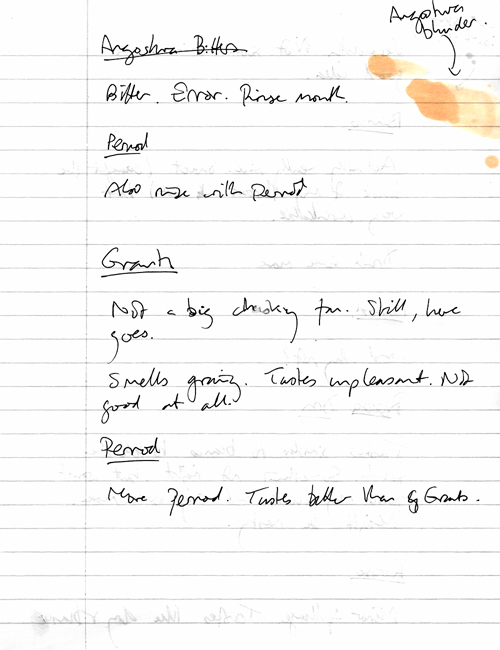 Angoshura
blunder.
Angoshura Bitters
Bitter. Error. Rinse mouth.
Pernod
Also rinse with Pernod
Grants
Not a big whisky fan. Still, here
goes.
Smells grainy. Tastes unpleasant. Not
good at all.
Pernod
More Pernod. Tastes better than Grants.